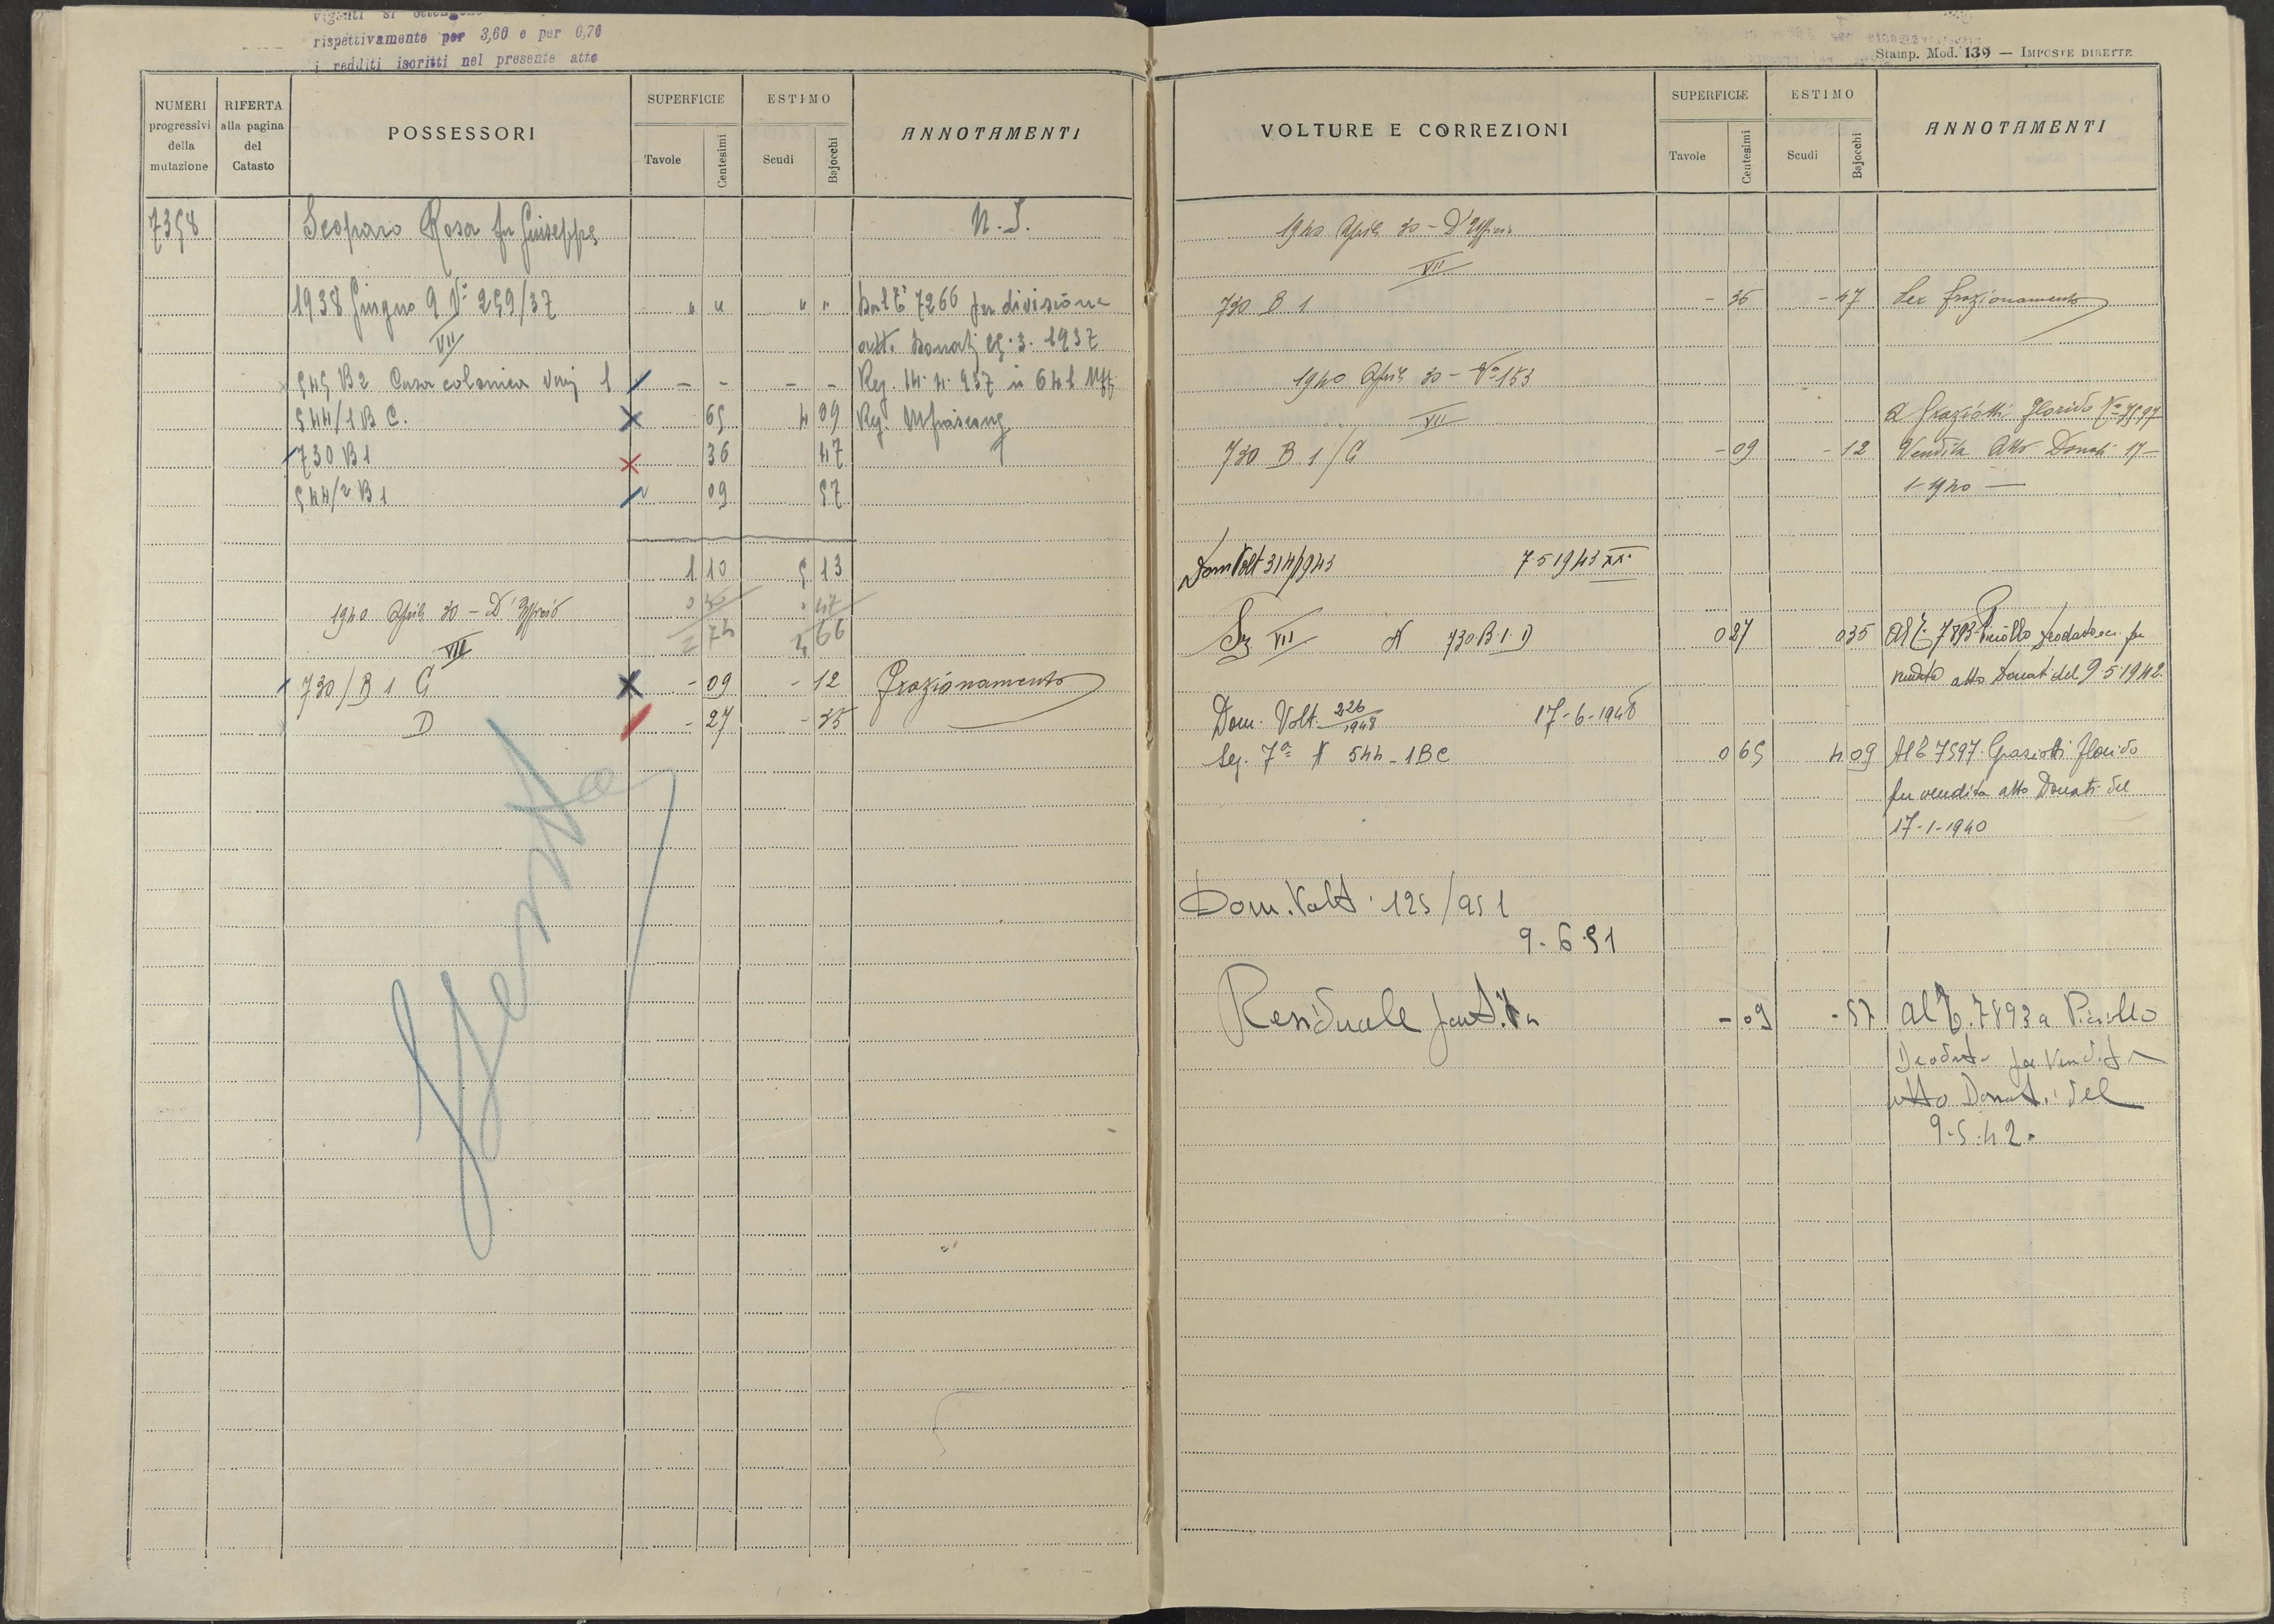 rispettivamente per 3,60 e per 0,70
i redditi iscritti nel presente atto
NUMERI progressivi della mutazione
RIFERTA alla pagina del Catasto
POSSESSORI
SUPERFICIE
Tavole
Centesimi
ESTIMO
Scudi
Bajocchi
ANNOTAMENTI
7358 Rosa fu Giuseppe
1938 Giugno 9 N° 259/37 " " " " 7266 per divisione
VII atto Donati 25.3.1937
545 B2 Casa colonica 1 - - - - Reg. 14.4.937 n 641
544/1 B C. 65 4 09 Reg.
730 B1 36 47
544/2 B1 09 57
1 10 5 13
0 36 0 47
74 4 66
1940 Aprile 30 - D'Ufficio
VII
730/B 1 G - 09 - 12 frazionamento
D - 27 - 35
Stamp. Mod. 139 — IMPOSTE DIRETTE
VOLTURE E CORREZIONI
SUPERFICIE
Tavole
Centesimi
ESTIMO
Scudi
Bajocchi
ANNOTAMENTI
1940 Aprile 30 - D'Ufficio
VII
730 B 1 - 36 - 47 Per frazionamento
1940 Aprile 30 - N° 153
VII A Graziotti Florido N° 7597
730 B 1/G - 09 - 12 Vendita Atto Donati 17-
1-1940 —
Dom Volt 314/943 7-5 1943 XXI
Sz VII N 730-B-1-D 0 27 0 35 Al T. 7893 per
vendita atto Donati del 9 5 1942
Dom. Volt. 226/1948 17-6-1948
Sez. 7ª N 544-1BC 0 65 4 09 Al T. 7597 Graziotti Florido
per vendita atto Donati del
17-1-1940
Dom. Volt. 125/951
9-6-51
Residuale - 09 - 57 Al T. 7893 a
per Vendita
atto Donati del
9-5-42.